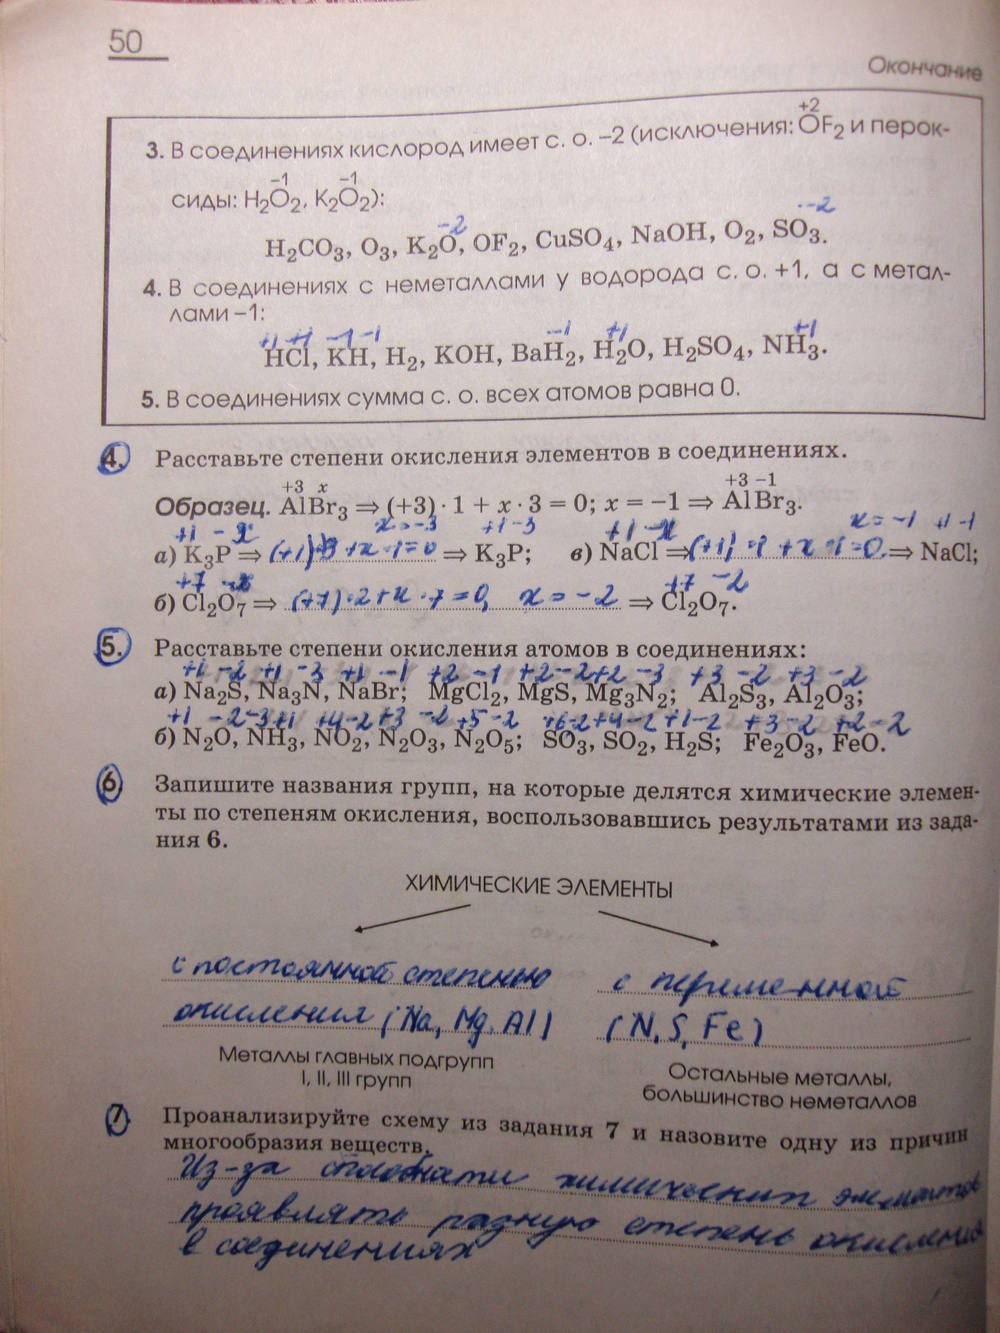 50
Окончание
+2
3. В соединениях кислород имеет с. о. –2 (исключения: OF₂ и перок-
–1 –1
сиды: H₂O₂, K₂O₂):
-2 -2
H₂CO₃, O₃, K₂O, OF₂, CuSO₄, NaOH, O₂, SO₃.
4. В соединениях с неметаллами у водорода с. о. +1, а с метал-
лами –1:
+1 +1 -1 -1 -1 +1 +1
HCl, KH, H₂, KOH, BaH₂, H₂O, H₂SO₄, NH₃.
5. В соединениях сумма с. о. всех атомов равна 0.
4. Расставьте степени окисления элементов в соединениях.
+3 x +3 –1
Образец. AlBr₃ ⇒ (+3) · 1 + x · 3 = 0; x = –1 ⇒ AlBr₃.
+1 -x x=-3 +1 -3 +1 -x x=-1 +1 -1
а) K₃P ⇒ (+1)·3 +x·1=0 ⇒ K₃P; в) NaCl ⇒ (+1)·1 + x·1=0 ⇒ NaCl;
+7 -x +7 -2
б) Cl₂O₇ ⇒ (+7)·2+x·7=0, x=-2 ⇒ Cl₂O₇.
5. Расставьте степени окисления атомов в соединениях:
+1 -2 +1 -3 +1 -1 +2 -1 +2 -2 +2 -3 +3 -2 +3 -2
а) Na₂S, Na₃N, NaBr; MgCl₂, MgS, Mg₃N₂; Al₂S₃, Al₂O₃;
+1 -2 -3 +1 +4 -2 +3 -2 +5 -2 +6 -2 +4 -2 +1 -2 +3 -2 +2 -2
б) N₂O, NH₃, NO₂, N₂O₃, N₂O₅; SO₃, SO₂, H₂S; Fe₂O₃, FeO.
6 Запишите названия групп, на которые делятся химические элемен-
ты по степеням окисления, воспользовавшись результатами из зада-
ния 6.
ХИМИЧЕСКИЕ ЭЛЕМЕНТЫ
с постоянной степенью
окисления (Na, Mg, Al)
Металлы главных подгрупп
I, II, III групп
с переменной
(N, S, Fe)
Остальные металлы,
большинство неметаллов
7 Проанализируйте схему из задания 7 и назовите одну из причин
многообразия веществ.
Из-за способности химических элементов
проявлять разную степень окисления
в соединениях